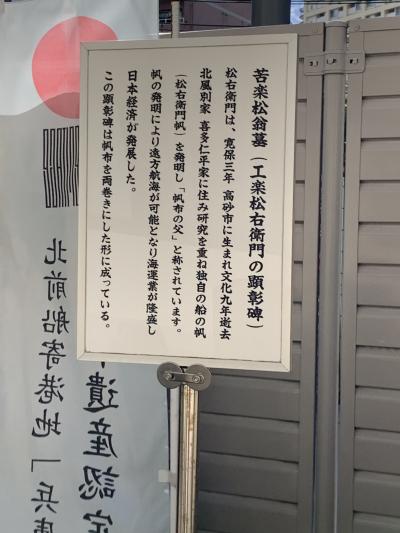 苦楽松翁墓(工楽松右衛門の顕彰碑)
松右衛門は、寛保三年 高砂市に生まれ文化九年逝去
北風別家 喜多仁平家に住み研究を重ね独自の船の帆
(松右衛門帆)を発明し「帆布の父」と称されています。
帆の発明により遠方航海が可能となり海運業が隆盛し
日本経済が発展した。
この顕彰碑は帆布を両巻きにした形に成っている。
遺産認定
北前船寄港地「兵庫